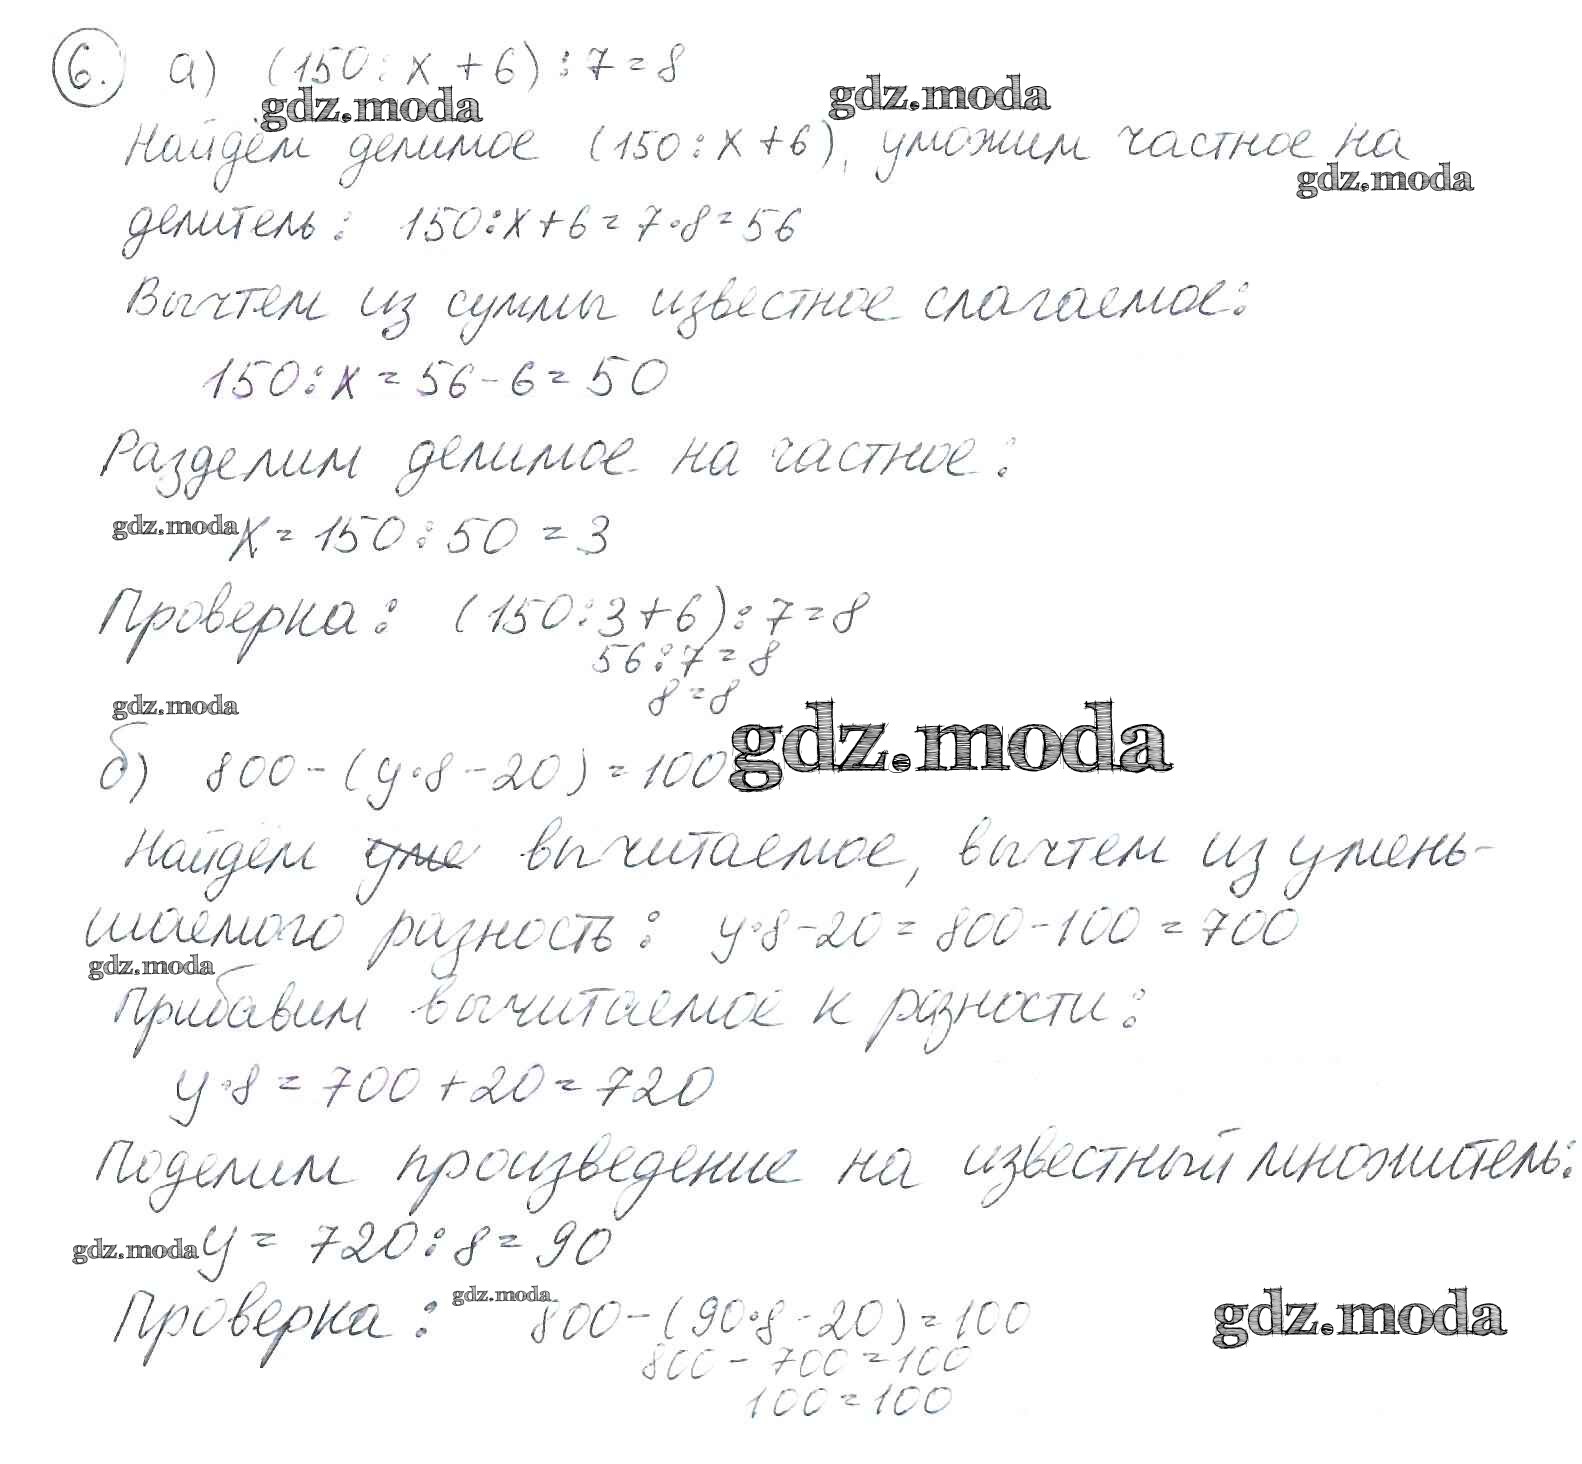 6. а) (150 : x + 6) : 7 = 8
gdz.moda
gdz.moda
Найдём делимое (150 : x + 6), умножим частное на
gdz.moda
делитель: 150 : x + 6 = 7 · 8 = 56
Вычтем из суммы известное слагаемое:
150 : x = 56 - 6 = 50
Разделим делимое на частное:
gdz.moda
x = 150 : 50 = 3
Проверка: (150 : 3 + 6) : 7 = 8
56 : 7 = 8
8 = 8
gdz.moda
б) 800 - (y · 8 - 20) = 100
gdz.moda
Найдём вычитаемое, вычтем из умень-
шаемого разность: y · 8 - 20 = 800 - 100 = 700
gdz.moda
Прибавим вычитаемое к разности:
y · 8 = 700 + 20 = 720
Поделим произведение на известный множитель:
gdz.moda
y = 720 : 8 = 90
gdz.moda
Проверка: 800 - (90 · 8 - 20) = 100
gdz.moda
800 - 700 = 100
100 = 100